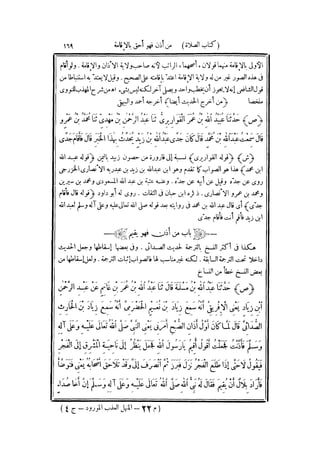 (كتاب الصلاة) من أذن فهو أحق بالإقامة ١٦٩
الأولى بالإقامة منهما قولان. أصحهما الراتب لأنه صاحب ولاية الأذان والإقامة. ولو أقام
فى هذه الصور غير من له ولاية الإقامة اعتد بإقامته على الصحيح. وقيل لا يعتد به استنباطا من
قول الشافعى إنه لا يجوز أن يخطب واحد ويصلى آخر لكنه ليس بشىء اه من شرح المهذب للنووى
ملخصا ﴿من أخرج الحديث أيضا﴾ أخرجه أحمد والبيهقى
﴿ص﴾ حدثنا عبيد الله بن عمر القواريرى ثنا عبد الرحمن بن مهدى ثنا محمد بن عمرو
قال سمعت عبد الله بن محمد قال كان جدى عبد الله بن زيد يحدث بهذا الخبر قال فأقام جدى
﴿ش﴾ ﴿قوله القواريرى﴾ نسبة إلى قارورة من حصون زبيد باليمن ﴿قوله عبد الله
ابن محمد﴾ هذا هو الصواب كما تقدم وهو ابن عبد الله بن زيد بن عبد ربه الأنصارى الخزرجى
روى عن جده وقيل عن أبيه عن جده. وعنه عتبة بن عبد الله المسعودى ومحمد بن سيرين
ومحمد بن عمرو الأنصارى. ذكره ابن حبان فى الثقات. روى له أبو داود ﴿قوله قال فأقام
جدى﴾ أى قال عبد الله بن محمد فى روايته بعد قوله صلى الله تعالى عليه وعلى آله وسلم لعبد الله
ابن زيد فأقم أنت فأقام جدى
باب من أذن فهو يقيم
هكذا فى أكثر النسخ بالترجمة لحديث الصدائى. وفى بعضها إسقاطها وجعل الحديث
داخلا تحت الترجمة السابقة. لكنه غير مناسب لها فالصواب إثبات الترجمة. ولعل إسقاطها من
بعض النسخ خطأ من النساخ
﴿ص﴾ حدثنا عبد الله بن مسلمة قال ثنا عبد الله بن عمر بن غانم عن عبد الرحمن
ابن زياد يعنى الإفريقى أنه سمع زياد بن نعيم الحضرمى أنه سمع زياد بن الحارث
الصدائى قال لما كان أول أذان الصبح أمرنى يعنى النبى صلى الله تعالى عليه وعلى آله
وسلم فأذنت فجعلت أقول أقيم يا رسول الله فجعل ينظر إلى ناحية المشرق إلى الفجر
فيقول لا حتى إذا طلع الفجر نزل فبرز ثم انصرف إلى وقد تلاحق أصحابه يعنى فتوضأ
فأراد بلال أن يقيم فقال له نبى الله صلى الله تعالى عليه وعلى آله وسلم إن أخا صداء
(م ٢٢ – المنهل العذب المورود – ج ٤)